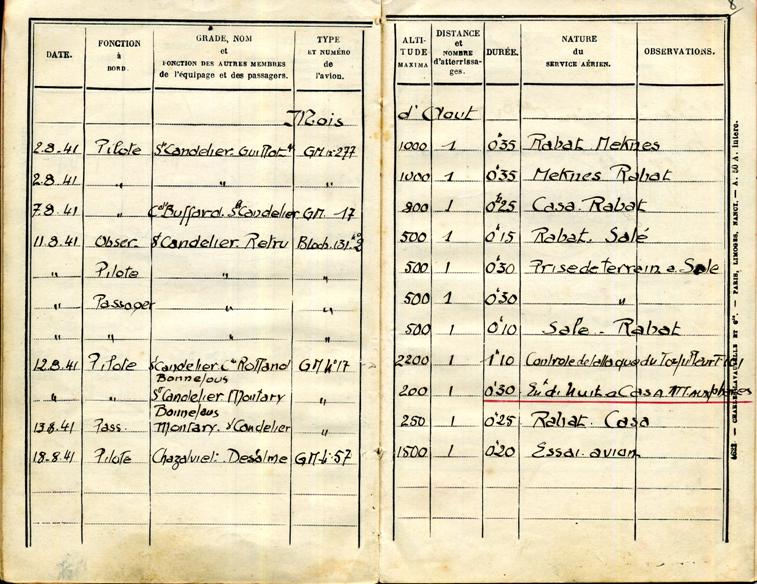 8
DATE.
FONCTION
à
BORD.
GRADE, NOM
et
FONCTION DES AUTRES MEMBRES
de l'équipage et des passagers.
TYPE
ET NUMÉRO
de
l'avion.
ALTI-
TUDE
MAXIMA
DISTANCE
et
NOMBRE
d'atterrissa-
ges.
DURÉE.
NATURE
du
SERVICE AÉRIEN.
OBSERVATIONS.
Mois d'Aout
2.8.41 Pilote Candelier. Guillot GM n°277 1000 1 0h35 Rabat Meknes
2.8.41 " " " 1000 1 0h35 Meknes Rabat
7.8.41 " Buffard. Candelier GM. 17 800 1 0h25 Casa. Rabat
11.8.41 Obser Candelier Retru Bloch.131. 2 500 1 0h15 Rabat. Salé
" Pilote " " 500 1 0h30 Prise de terrain a Sale
" Passager " " 500 1 0h30 "
" " " " 500 1 0h10 Sale - Rabat
12.8.41 Pilote Candelier Rolland GM 17 2200 1 1h10 Controle de
Bonnefous
" " Candelier Montary " 200 1 0h30 de Nuit a Casa
Bonnefous
13.8.41 Pass. Montary. Candelier " 250 1 0h25 Rabat. Casa
18.8.41 Pilote Chazalviel. GM. 57 1500 1 0h20 Essai avion
4622. — CHARLES-LAVAUZELLE ET Cie. — PARIS, LIMOGES, NANCY. — A. 50 A. Intero.